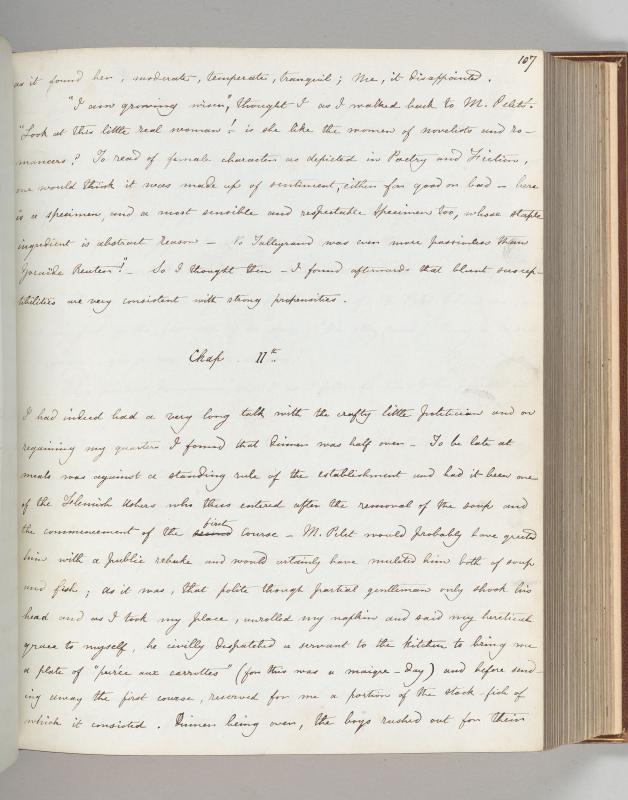 107
as it found her, moderate, temperate, tranquil; me, it disappointed.
"I am growing wiser", thought I as I walked back to M. Pelet's.
"Look at this little real woman! is she like the women of novelists and ro-
mancers? To read of female character as depicted in Poetry and Fiction,
one would think it was made up of sentiment, either for good or bad - here
is a specimen, and a most sensible and respectable specimen too, whose staple
ingredient is abstract reason - No Talleyrand was ever more passionless than
Zoraïde Reuter!" - So I thought then - I found afterwards that blunt suscep-
tibilities are very consistent with strong propensities.
Chap 11th
I had indeed had a very long talk with the crafty little politician and on
regaining my quarters I found that dinner was half over - To be late at
meals was against a standing rule of the establishment and had it been one
of the Flemish Ushers who thus entered after the removal of the soup and
the commencement of the second first course - M. Pelet would probably have greeted
him with a public rebuke and would certainly have mulcted him both of soup
and fish; as it was, that polite though partial gentleman only shook his
head and as I took my place, unrolled my napkin and said my heretical
grace to myself, he civilly despatched a servant to the kitchen to bring me
a plate of "purée aux carrottes" (for this was a maigre-day) and before send-
ing away the first course, reserved for me a portion of the stock-fish of
which it consisted. Dinner being over, the boys rushed out for their